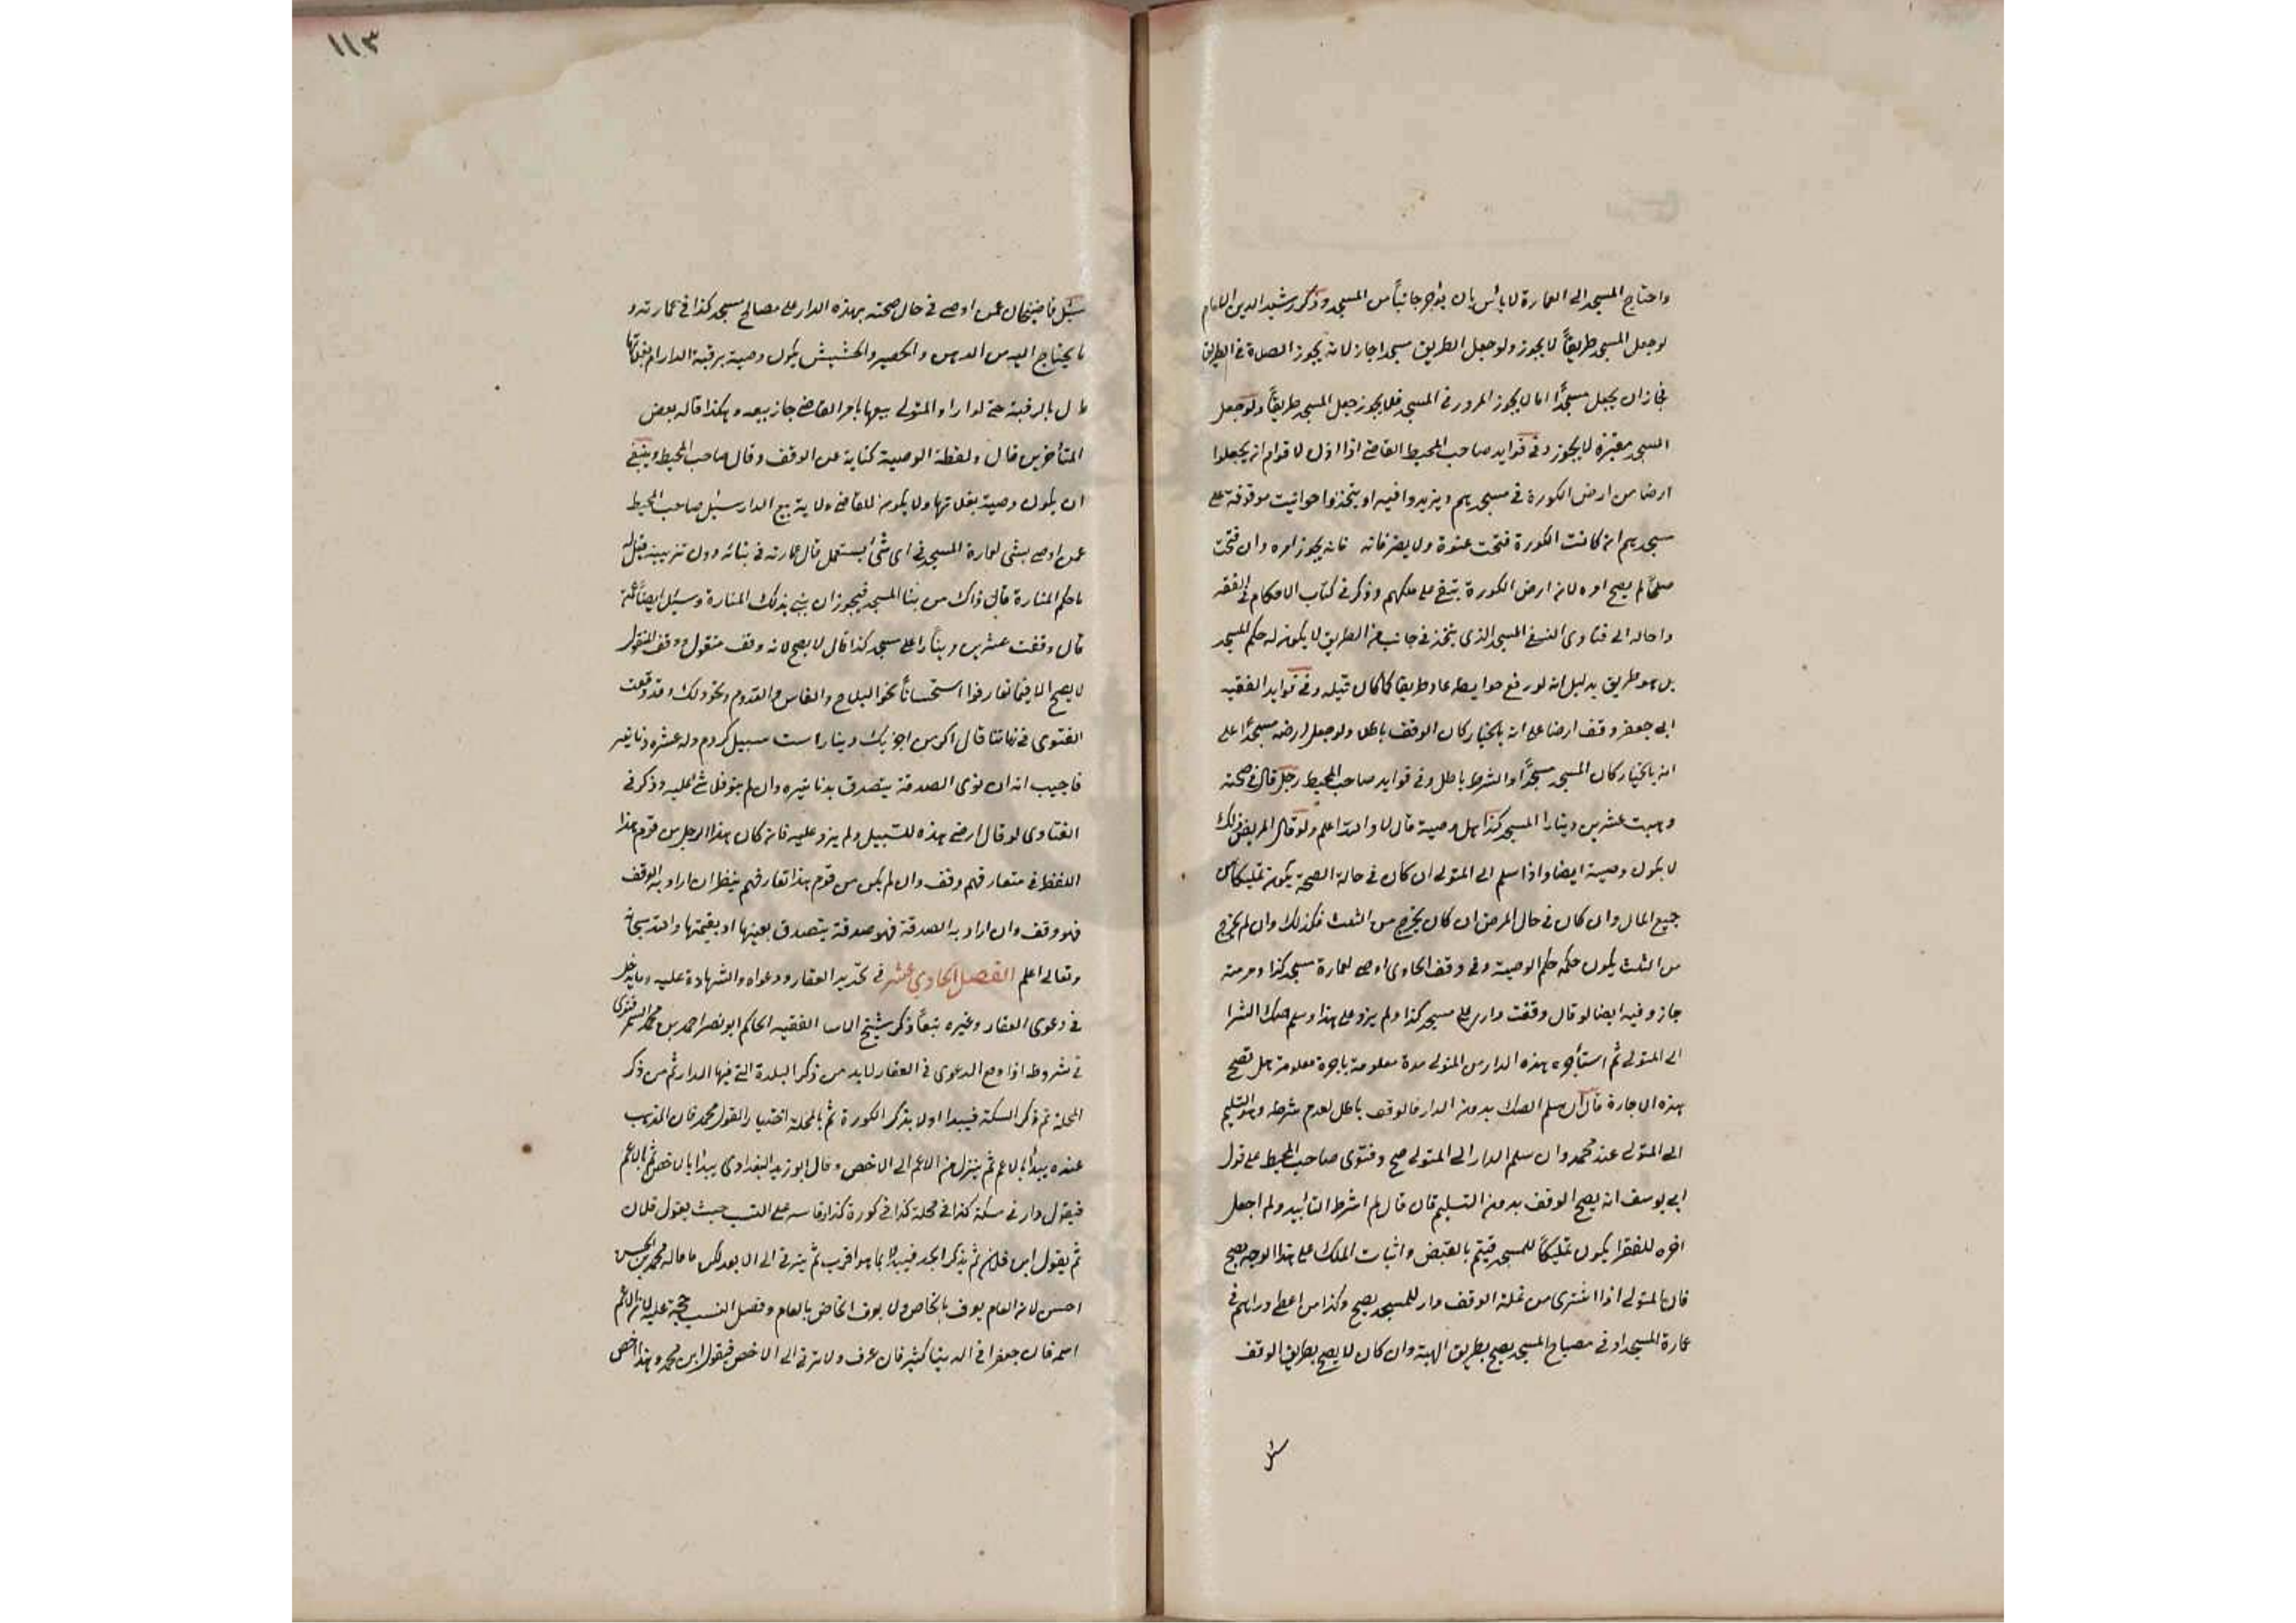 واحتاج المسجد الى العمارة لا بأس بان يؤاجر جانباً من المسجد وذكر رشيد الدين الامام
لو جعل المسجد طريقاً لا يجوز ولو جعل الطريق مسجدا جاز لانه يجوز الصلاة في الطريق
فجاز ان يجعل مسجداً اما لا يجوز المرور في المسجد فلا يجوز جعل المسجد طريقاً ولو جعل
المسجد مقبرة لا يجوز وفي فوايد صاحب المحيط القاضي اذا اذن لاقوام ان يجعلوا
ارضا من ارض الكورة في مسجدهم ويزيدوا فيه او يتخذوا حوانيت موقوفة على
مسجدهم ان كانت الكورة فتحت عنوة ولا يضر فانه يجوز امره وان فتحت
صلحاً لم يصح امره لان ارض الكورة تبقى على ملكهم وذكر في كتاب الاحكام في الفقه
واحاله الى فتاوى النسفي المسجد الذي يتخذ في جانب من الطريق لا يكون له حكم المسجد
بل هو طريق بدليل انه لو رفع حوايطه عاد طريقا كما كان قبله وفي فوايد الفقيه
ابي جعفر وقف ارضا على انه بالخيار كان الوقف باطل ولو جعل ارضه مسجداً على
انه بالخيار كان المسجد مسجداً والشرط باطل وفي فوايد صاحب المحيط رجل قال في صحته
وهبت عشرين دينارا لمسجد كذا هل وصية قال لا والله اعلم ولو قال المريض ذلك
لا يكون وصية ايضا واذا سلم الى المتولي ان كان في حالة الصحة يكون تمليكا من
جميع المال وان كان في حال المرض ان كان يخرج من الثلث فكذلك وان لم يخرج
من الثلث يكون حكمه حكم الوصية وفي وقف الحاوى اوصى لعمارة مسجد كذا ومرمته
جاز وفيه ايضا لو قال وقفت داري على مسجد كذا ولم يزد على هذا وسلم صك الشرا
الى المتولي ثم استأجر هذه الدار من المتولي مدة معلومة باجرة معلومة هل تصح
هذه الاجارة قال ان سلم الصك بدون الدار فالوقف باطل لعدم شرطه وهو التسليم
الى المتولي عند محمد وان سلم الدار الى المتولي صح وفتوى صاحب المحيط على قول
ابي يوسف انه يصح الوقف بدون التسليم فان قال لم اشرط التأبيد ولم اجعل
اخره للفقرا يكون تمليكاً للمسجد فيتم بالقبض واثبات الملك على هذا الوجه يصح
فان المتولي اذا اشترى من غلة الوقف دار للمسجد يصح وكذا من اعطى دراهم في
عمارة المسجد او في مصباح المسجد يصح بطريق الهبة وان كان لا يصح بطريق الوقف
سئل
١١٣
سئل قاضيخان عمن اوصى في حال صحته بهذه الدار على مصالح مسجد كذا في عمارته و
ما يحتاج اليه من الدهن والحصير والحشيش يكون وصية برقبة الدار ام بغلاتها
قال بالرقبة حتى لو اراد المتولي بيعها بامر القاضي جاز بيعه وهكذا قاله بعض
المتأخرين قال ولفظة الوصية كناية عن الوقف وقال صاحب المحيط وينبغي
ان يكون وصية بغلاتها ولا يكون للقاضي ولاية بيع الدار سئل صاحب المحيط
عمن اوصى بشئ لعمارة المسجد في اى شئ يستعمل قال عمارته في بنائه دون تزيينه قيل له
ما حكم المنارة قال ذاك من بنا المسجد فيجوز ان يبنى بذلك المنارة وسئل ايضاً عمن
قال وقفت عشرين ديناراً على مسجد كذا قال لا يصح لانه وقف منقول ووقف المنقول
لا يصح الا فيما تعارفوا استحساناً نحو السلاح والفاس والقدوم ونحو ذلك وقد وقعت
الفتوى في زماننا قال اكر من اجز يك دينار است سبيل كردم وله عشرة دنانير
فاجيب انه ان نوى الصدقة يتصدق بدنانيره وان لم ينو فلا شئ عليه وذكر في
الفتاوى لو قال ارضي هذه للسبيل ولم يزد عليه فان كان هذا الرجل من قوم هذا
اللفظ في متعارفهم وقف وان لم يكن من قوم هذا تعارفهم ينظر ان اراد به الوقف
فهو وقف وان اراد به الصدقة فهو صدقة يتصدق بعينها او بقيمتها والله سبحانه
وتعالى اعلم الفصل الحادي عشر في تحديد العقار ودعواه والشهادة عليه وما يدخل
في دعوى العقار وغيره تبعاً ذكر شيخ الفقيه الحاكم ابو نصر احمد بن محمد السمرقندي
في شروطه اذا وقع الدعوى في العقار لا بد من ذكر البلدة التي فيها الدار ثم من ذكر
المحلة ثم ذكر السكة فيبدا اولا بذكر الكورة ثم بالمحلة اختيار القول محمد فان المذهب
عنده يبدأ بالاعم ثم ينزل من الاعم الى الاخص وقال ابو زيد البغدادي يبدا بالاخص ثم بالاعم
فيقول دار في سكة كذا في محلة كذا في كورة كذا وقاسه على النسب حيث يقول فلان
ثم يقول ابن فلان ثم يذكر الجد فيبدأ بما هو اقرب ثم يترقى الى الابعد لكن ما قاله محمد بن الحسن
احسن لان العام يعرف بالخاص ولا يعرف الخاص بالعام وفصل النسب حجة عليه لان الاعم
اسمه فان جعفرا في الدنيا كثير فان عرف والا ترقى الى الاخص فيقول ابن محمد وهذا اخص